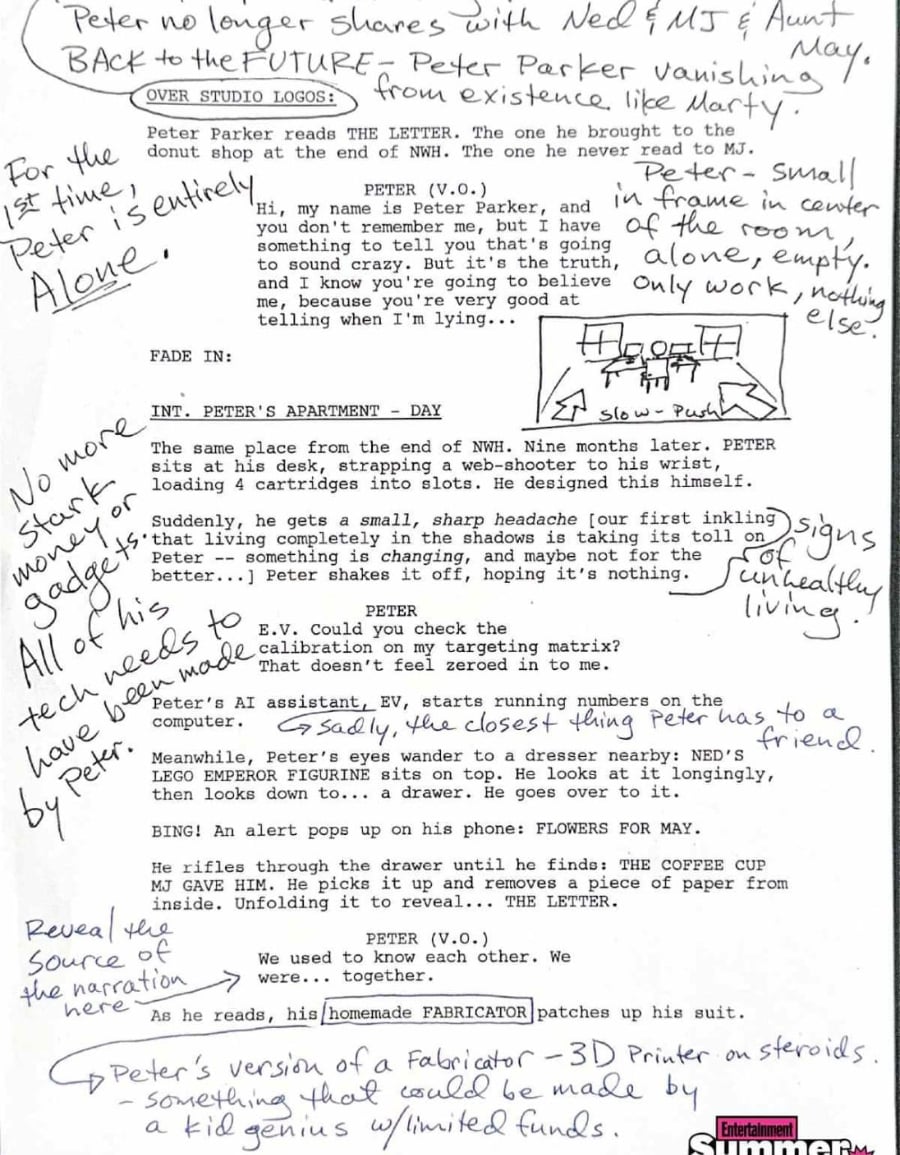 Peter no longer shares with Ned & MJ & Aunt
May.
BACK to the FUTURE - Peter Parker vanishing
from existence like Marty.
OVER STUDIO LOGOS:
Peter Parker reads THE LETTER. The one he brought to the
donut shop at the end of NWH. The one he never read to MJ.
For the
1st time,
Peter is entirely
Alone.
PETER (V.O.)
Hi, my name is Peter Parker, and
you don't remember me, but I have
something to tell you that's going
to sound crazy. But it's the truth,
and I know you're going to believe
me, because you're very good at
telling when I'm lying...
Peter - small
in frame in center
of the room,
alone, empty.
only work, nothing
else.
FADE IN:
slow-Push
INT. PETER'S APARTMENT - DAY
The same place from the end of NWH. Nine months later. PETER
sits at his desk, strapping a web-shooter to his wrist,
loading 4 cartridges into slots. He designed this himself.
No more
Stark
money or
gadgets.
All of his
tech needs to
have been made
by Peter.
Suddenly, he gets a small, sharp headache [our first inkling
that living completely in the shadows is taking its toll on
Peter -- something is changing, and maybe not for the
better...] Peter shakes it off, hoping it's nothing.
signs
of
unhealthy
living.
PETER
E.V. Could you check the
calibration on my targeting matrix?
That doesn't feel zeroed in to me.
Peter's AI assistant, EV, starts running numbers on the
computer.
sadly, the closest thing Peter has to a
friend.
Meanwhile, Peter's eyes wander to a dresser nearby: NED'S
LEGO EMPEROR FIGURINE sits on top. He looks at it longingly,
then looks down to... a drawer. He goes over to it.
BING! An alert pops up on his phone: FLOWERS FOR MAY.
He rifles through the drawer until he finds: THE COFFEE CUP
MJ GAVE HIM. He picks it up and removes a piece of paper from
inside. Unfolding it to reveal... THE LETTER.
Reveal the
source of
the narration
here
PETER (V.O.)
We used to know each other. We
were... together.
As he reads, his homemade FABRICATOR patches up his suit.
Peter's version of a Fabricator - 3D Printer on steroids.
- something that could be made by
a kid genius w/limited funds.
Entertainment
Summer